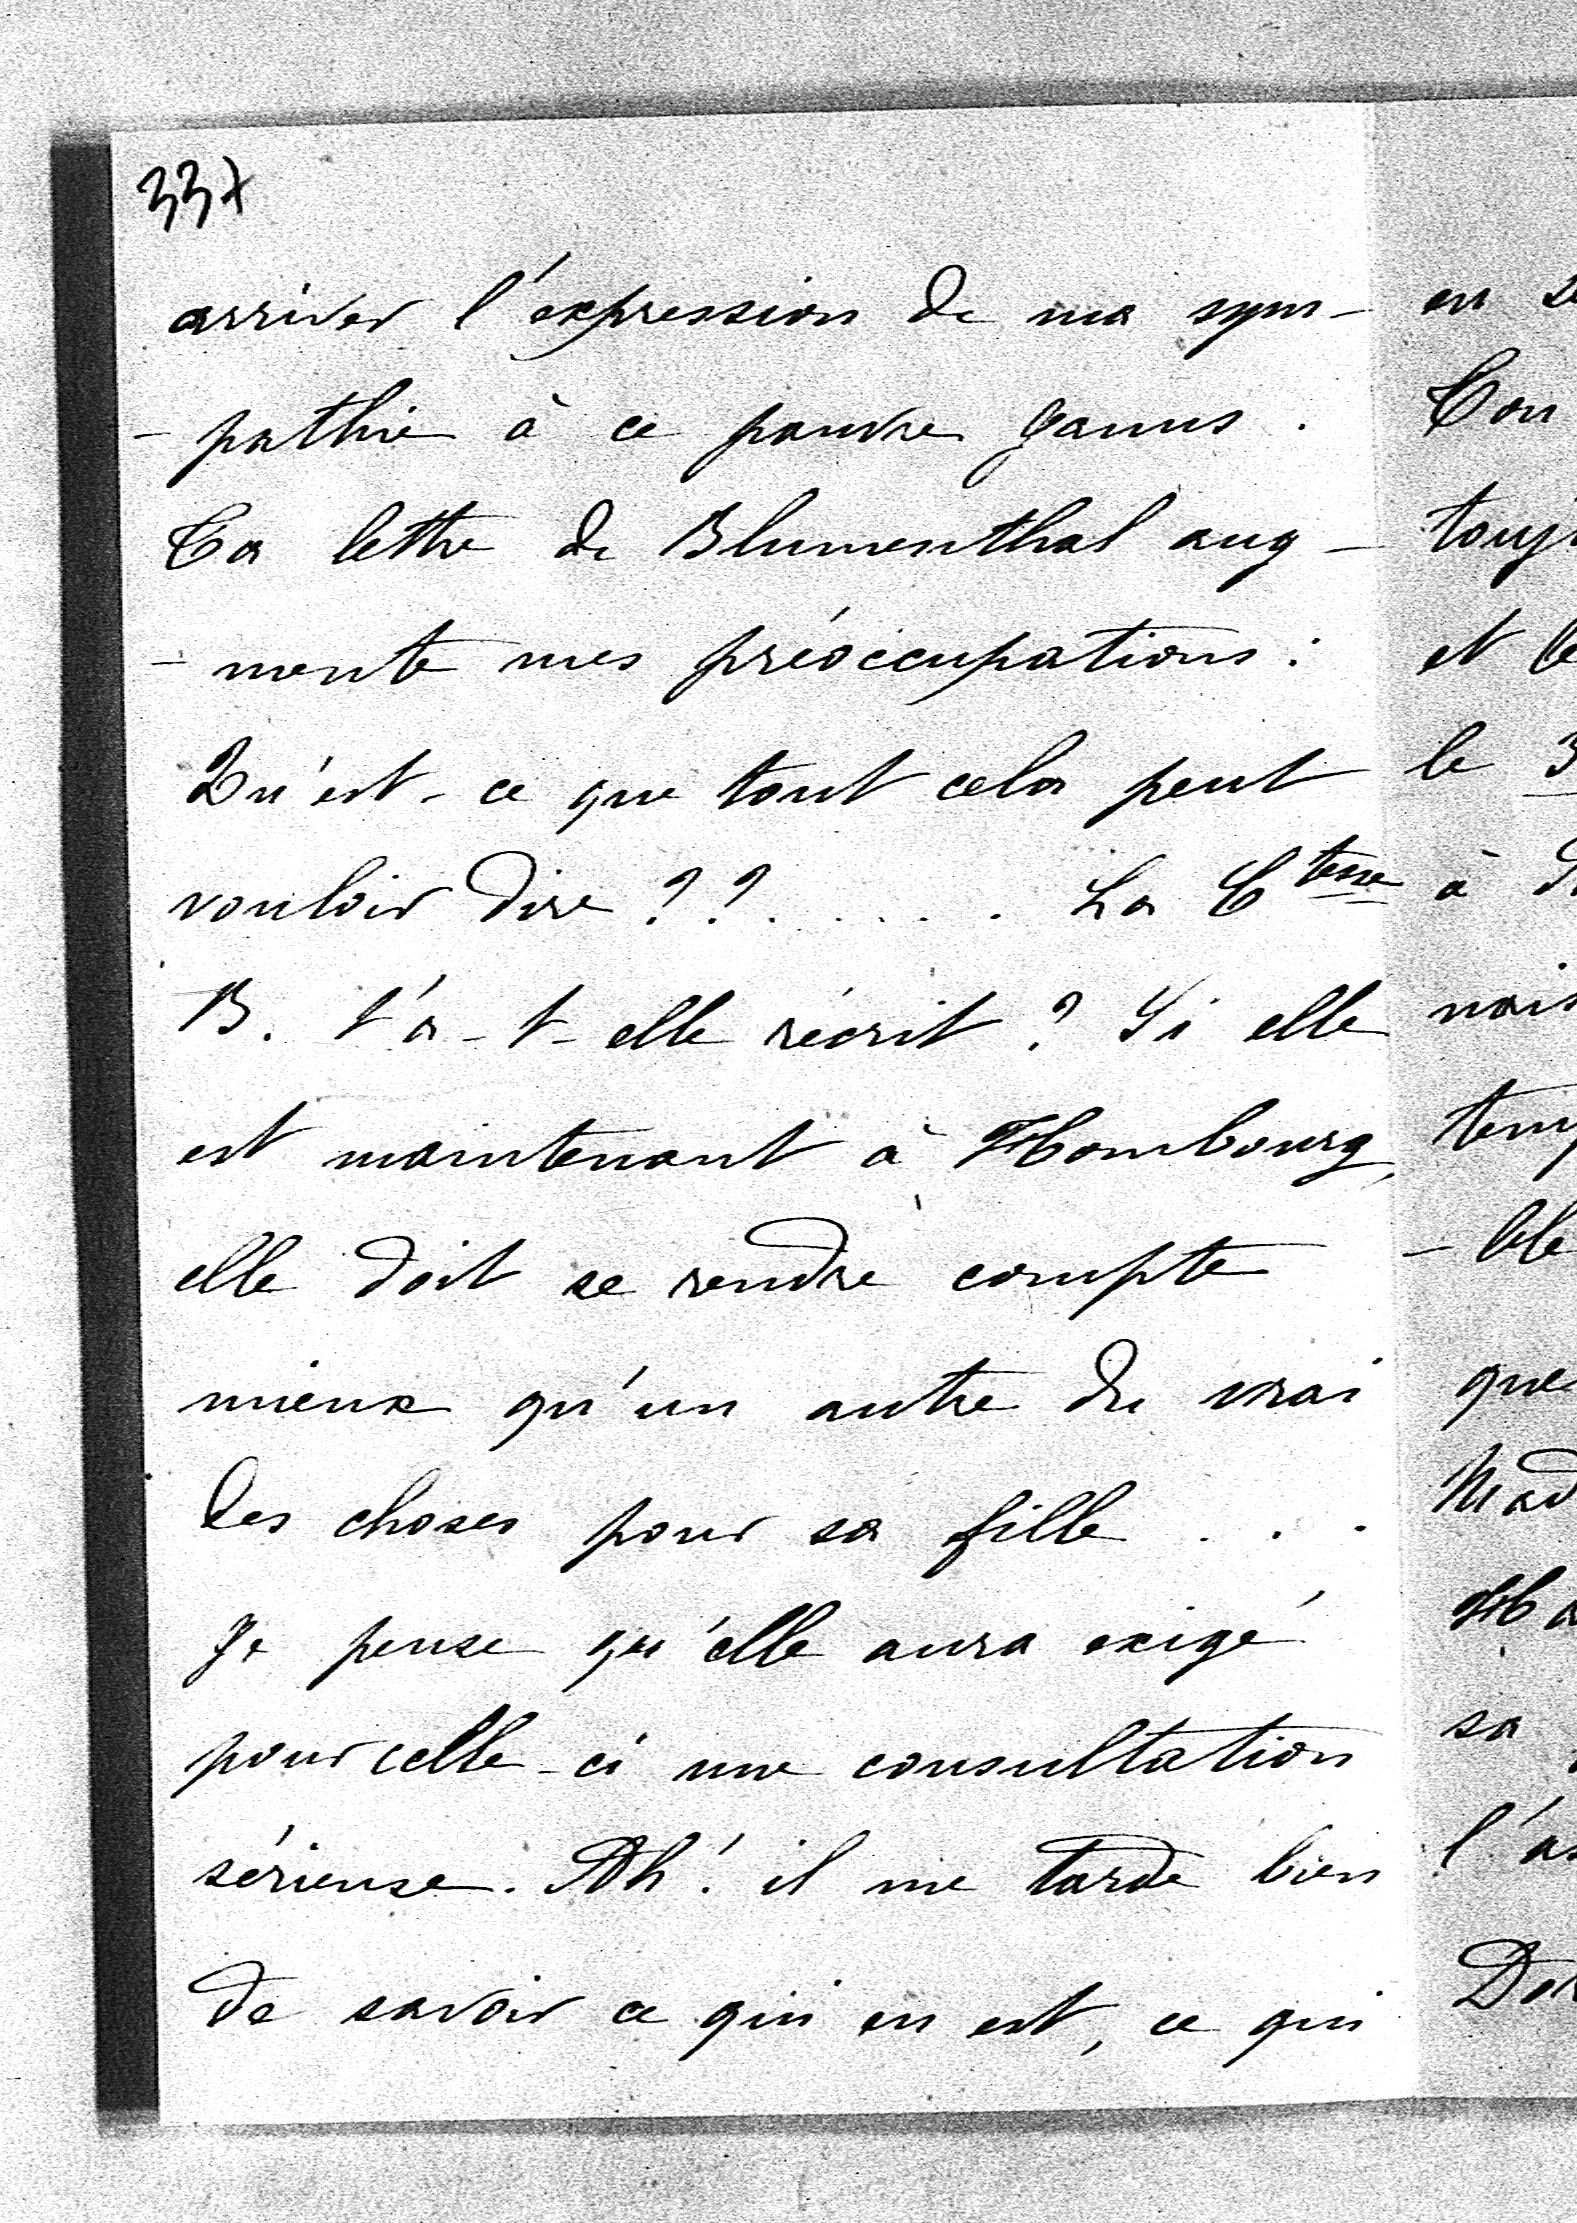 337
arriver l'expression de ma sym-
-pathie à ce pauvre Janus.
Ta lettre de Blumenthal aug-
-mente mes préoccupations :
Qu'est-ce que tout cela peut
vouloir dire ??..... La Ctesse
B. t'a-t-elle récrit ? Si elle
est maintenant à Hombourg,
elle doit se rendre compte
mieux qu'un autre du vrai
des choses pour sa fille ...
Je pense qu'elle aura exigé
pour celle-ci une consultation
sérieuse. Ah ! il me tarde bien
de savoir ce qui en est, ce qui